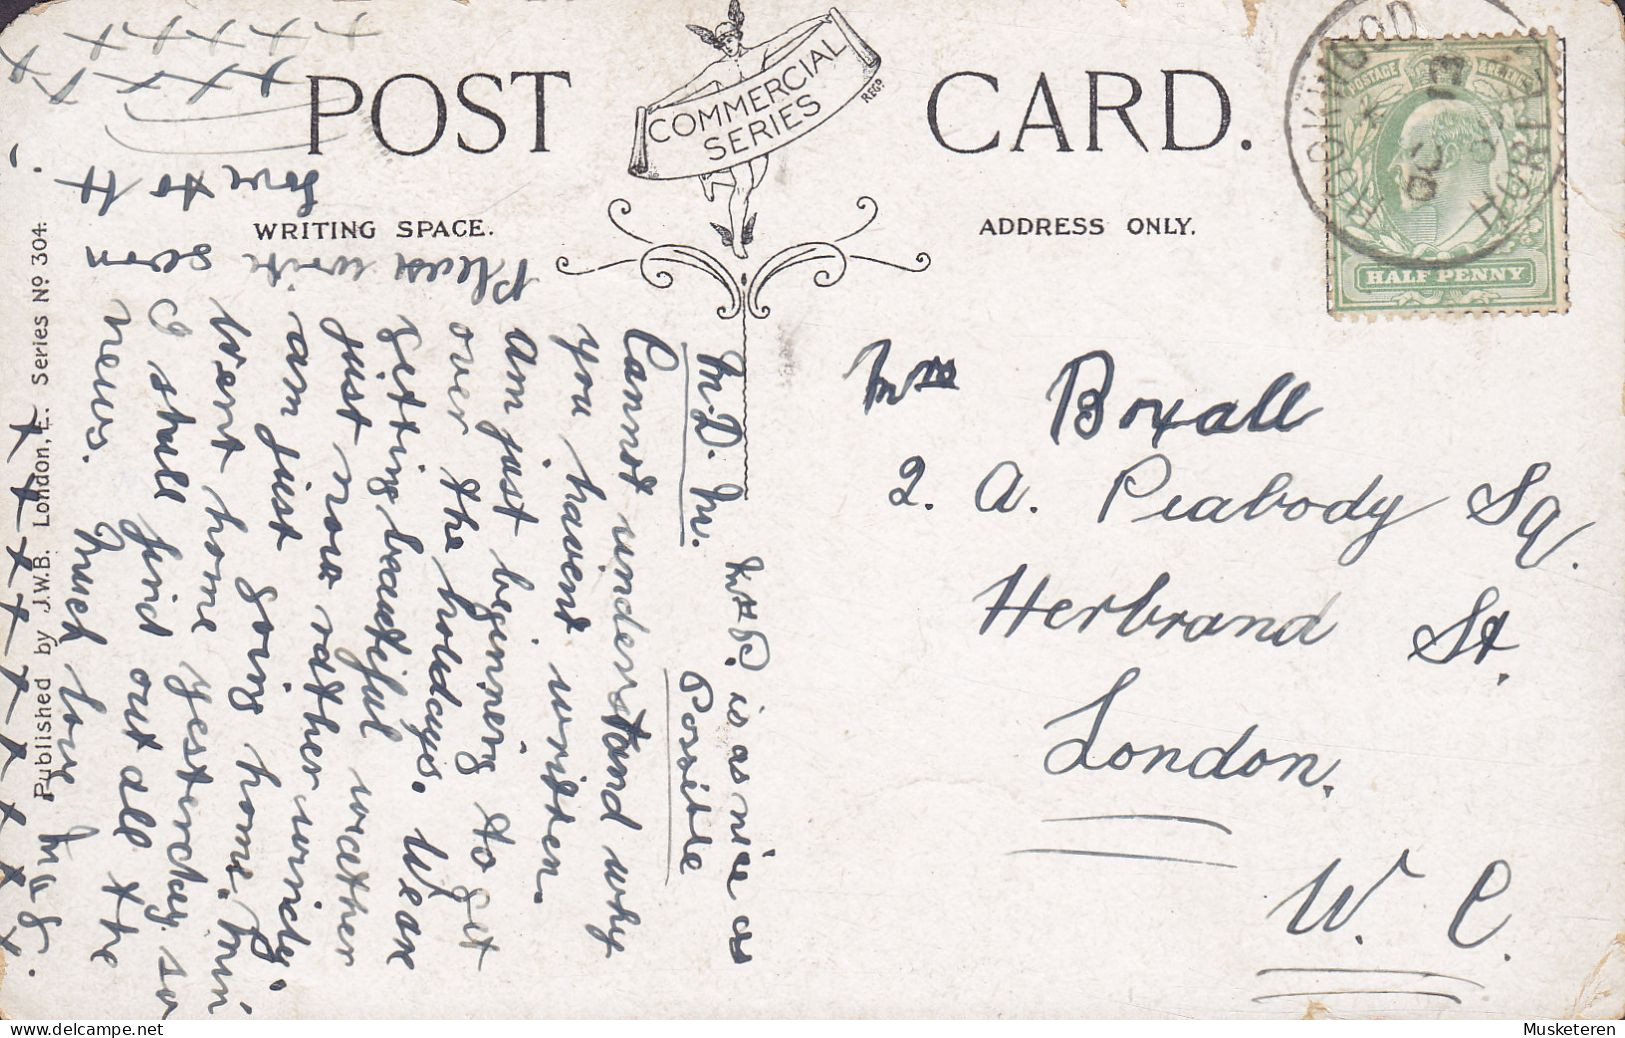 POST CARD.
COMMERCIAL
SERIES
REGD
WRITING SPACE.
ADDRESS ONLY.
HOOKWOOD
HORLEY
OC 13
POSTAGE & REVENUE
HALF PENNY
Mrs Boxall
2. A. Peabody Sq.
Herbrand St.
London.
W. C.
is as nice as
Possible
M. D. M.
Cannot understand why
you havent written.
Am just beginning to get
over the holidays. Weax
getting beautiful weather
just now rather windy.
am just going home. Min
Went home yesterday so
I shall find out all the
news. Much love
Please write soon
love to H
x x x x x
x x x x x x
x x x x x x x x x x
Published by J.W.B. London, E. Series No 304.
Musketeren